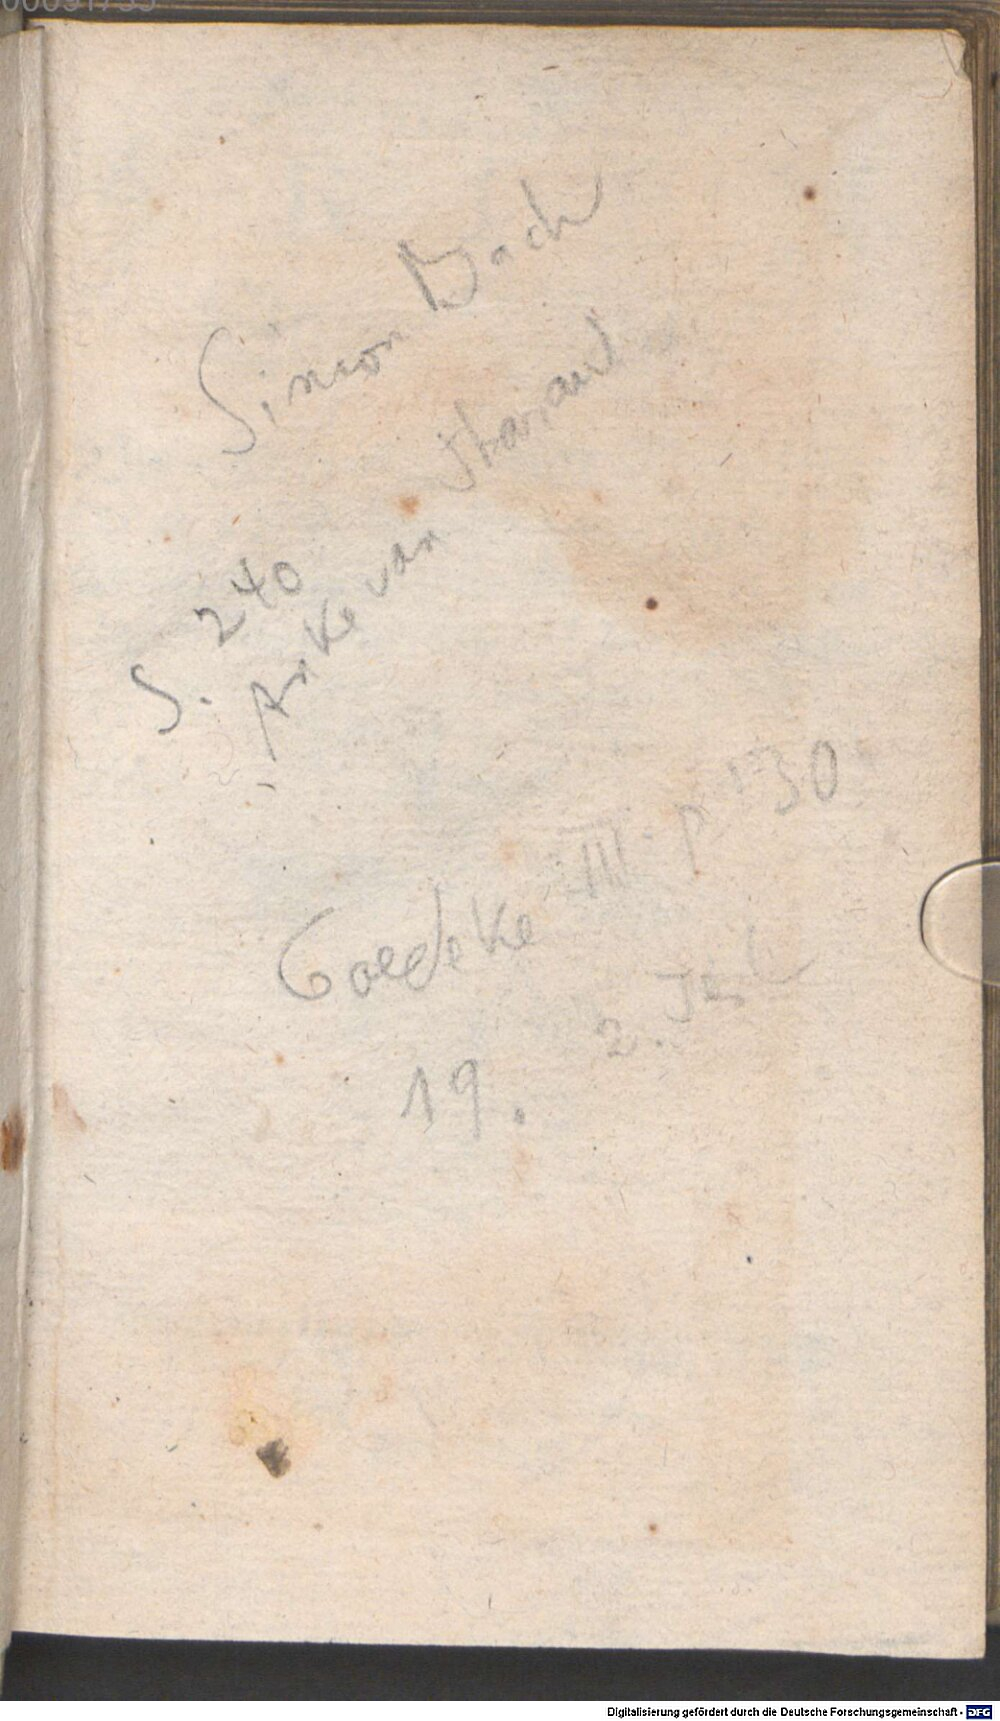 Simon Dach
S. 240
Anke van Tharaud
Goedeke III. p 130
2.
19.
Digitalisierung gefördert durch die Deutsche Forschungsgemeinschaft - DFG